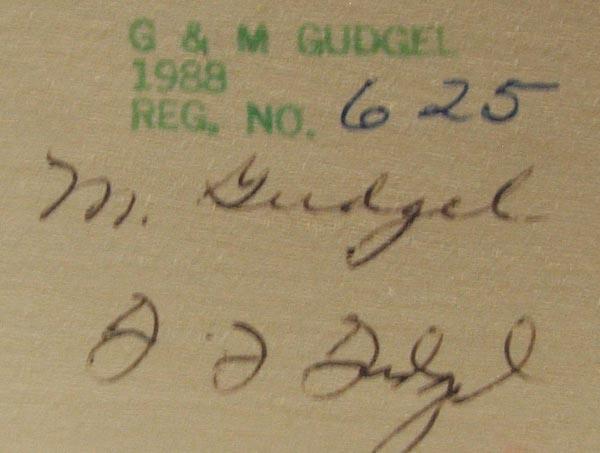 G & M GUDGEL
1988
REG. NO. 625
M. Gudgel
Gudgel